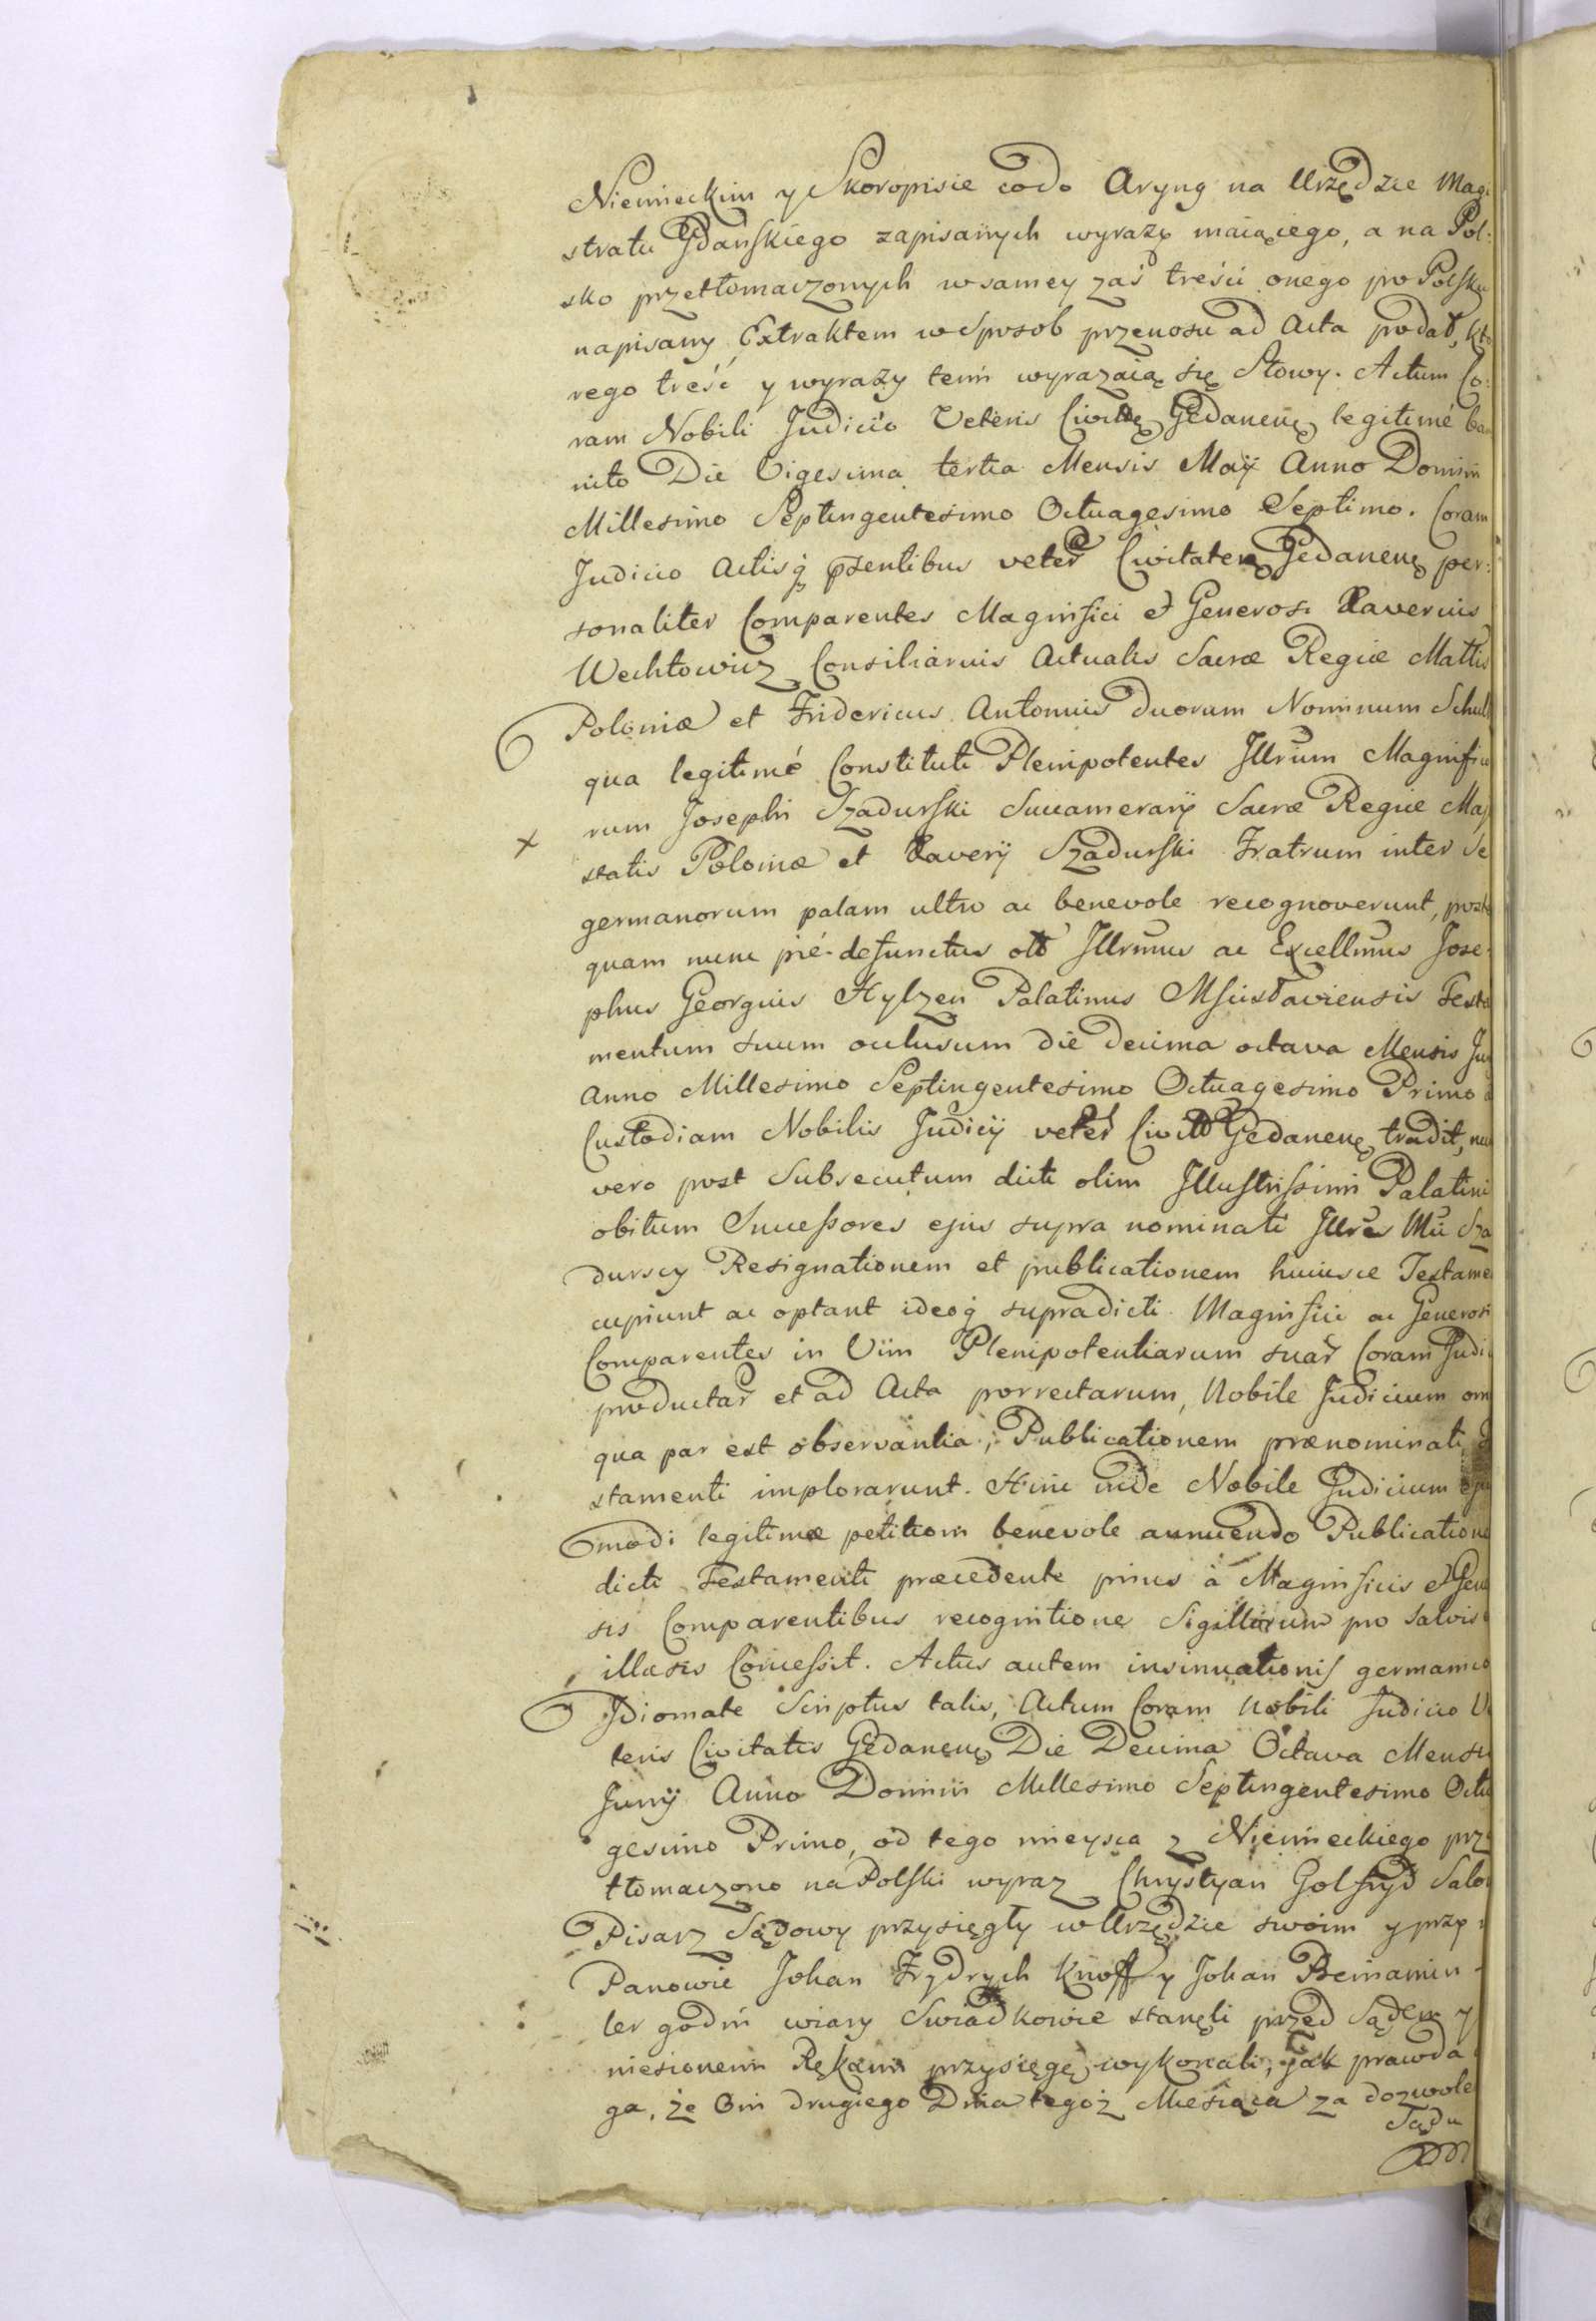 Niemieckim y Skoropisie codo Aryng na Urzędzie Magi
stratu Gdańskiego zapisanych wyrazy maiącego, a na Pol:
sko przetłomaczonych w samey zaś treści onego po Polsku
napisany Extraktem w Sposob przenosu ad Acta podał, kto
rego treść y wyrazy temi wyrazaią się Słowy. Actum Co:
ram Nobili Judicio Veteris Civittę Gedanenę legitimé ban
nito Die Vigesima tertia Mensis Maÿ Anno Domini
Millesimo Septingentesimo Octuagesimo Septimo. Coram
Judicio Actisq̃ p̃sentibus veteř Civitateą Gedanenę per:
sonaliter Comparentes Magnifici et Generosi Xaverius
Wechtowicz Consiliarius Actualis Sacræ Regiæ Mattis
Poloniæ et Fridericus Antonius duorum Nominum Schul
qua legitimé Constituti Plenipotentes Jllrium Magnifico
rum Josephi Szadurski Succamerarÿ Sacræ Regiæ Maj
statis Poloniæ et Xaverÿ Szadurski Fratrum inter Se
germanorum palam ultro ac benevole recognoverunt, posta
quam nunc pié defunctus olt Jllrmus ac Excellmus Jose
phus Georgius Hylzen Palatinus Mscisłaviensis Testa
mentum suum occlusum die decima octava Mensis Jun
Anno Millesimo Septingentesimo Octuagesimo Primo a
Custodiam Nobilis Judicÿ veter Civitt Gedanenę tradit, nu
vero post Subsecutum dicti olim Jllustrissimi Palatini
obitum Successores ejus supra nominati Jllres Mū Sza
durscy Resignationem et publicationem huiusce Testame
cupiunt ac optant ideoq̃ supradicti Magnifici ac Generosi
Comparentes in Vim Plenipotentiarum suař Coram Judi
productař et ad Acta porrectarum, Nobile Judicium om
qua par est observantia, Publicationem prænominati
stamenti implorarunt. Hinc inde Nobile Judicium eju
modi legitimæ petitioni benevole annuendo Publication
dicti Testamenti præcedente prius à Magnificis et Gen
sis Comparentibus recognitione Sigillorum pro salvis
illæsis Concessit. Actus autem insinuationis germanico
Jdiomate Scriptus talis, Actum Coram Nobili Judicio V
teris Civitatis Gedanenę Die Decima Octava Mensis
Junÿ Anno Domini Millesimo Septingentesimo Octu
gesimo Primo, od tego mieysca z Niemieckiego prze
tłomaczono na Polski wyraz Chrystyan Golfryd Salo
Pisarz Sądowy przysięgły w Urzędzie swoim y przy
Panowie Johan Frydrych Knoff y Johan Beniamin
ler godni wiary Swiadkowie stanęli przed Sądem y
niesionemi Rękami przysięgę wykonali, jak prawda
ga, że Oni drugiego Dnia tegoż Miesiąca za dozwole
Sądu